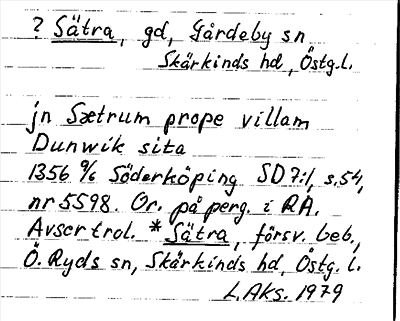 ? Sätra, gd, Gårdeby sn
Skärkinds hd, Östg.l.
jn Sætrum prope villam
Dunwik sita
1356 9/6 Söderköping SD7:1, s.54,
nr 5598. Or. på perg. i RA.
Avser trol. *Sätra, försv. beb.,
Ö. Ryds sn, Skärkinds hd, Östg. l.
L.Aks. 1979